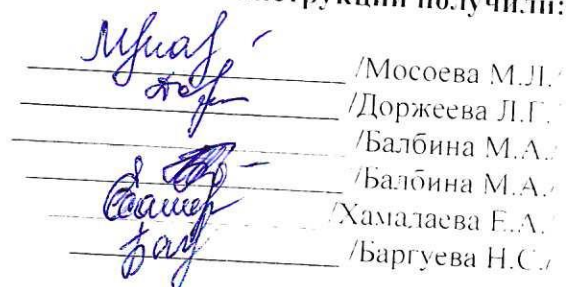 получили:
/Мосоева М.Л./
/Доржеева Л.Г.
/Балбина М.А./
/Балбина М.А./
/Хамалаева Е.А.
/Баргуева Н.С./